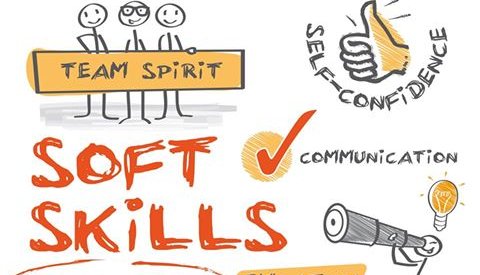 TEAM SPiRiT
SELF-CONFiDENCE
SOFT
SKiLLS
COMMUNiCATiON